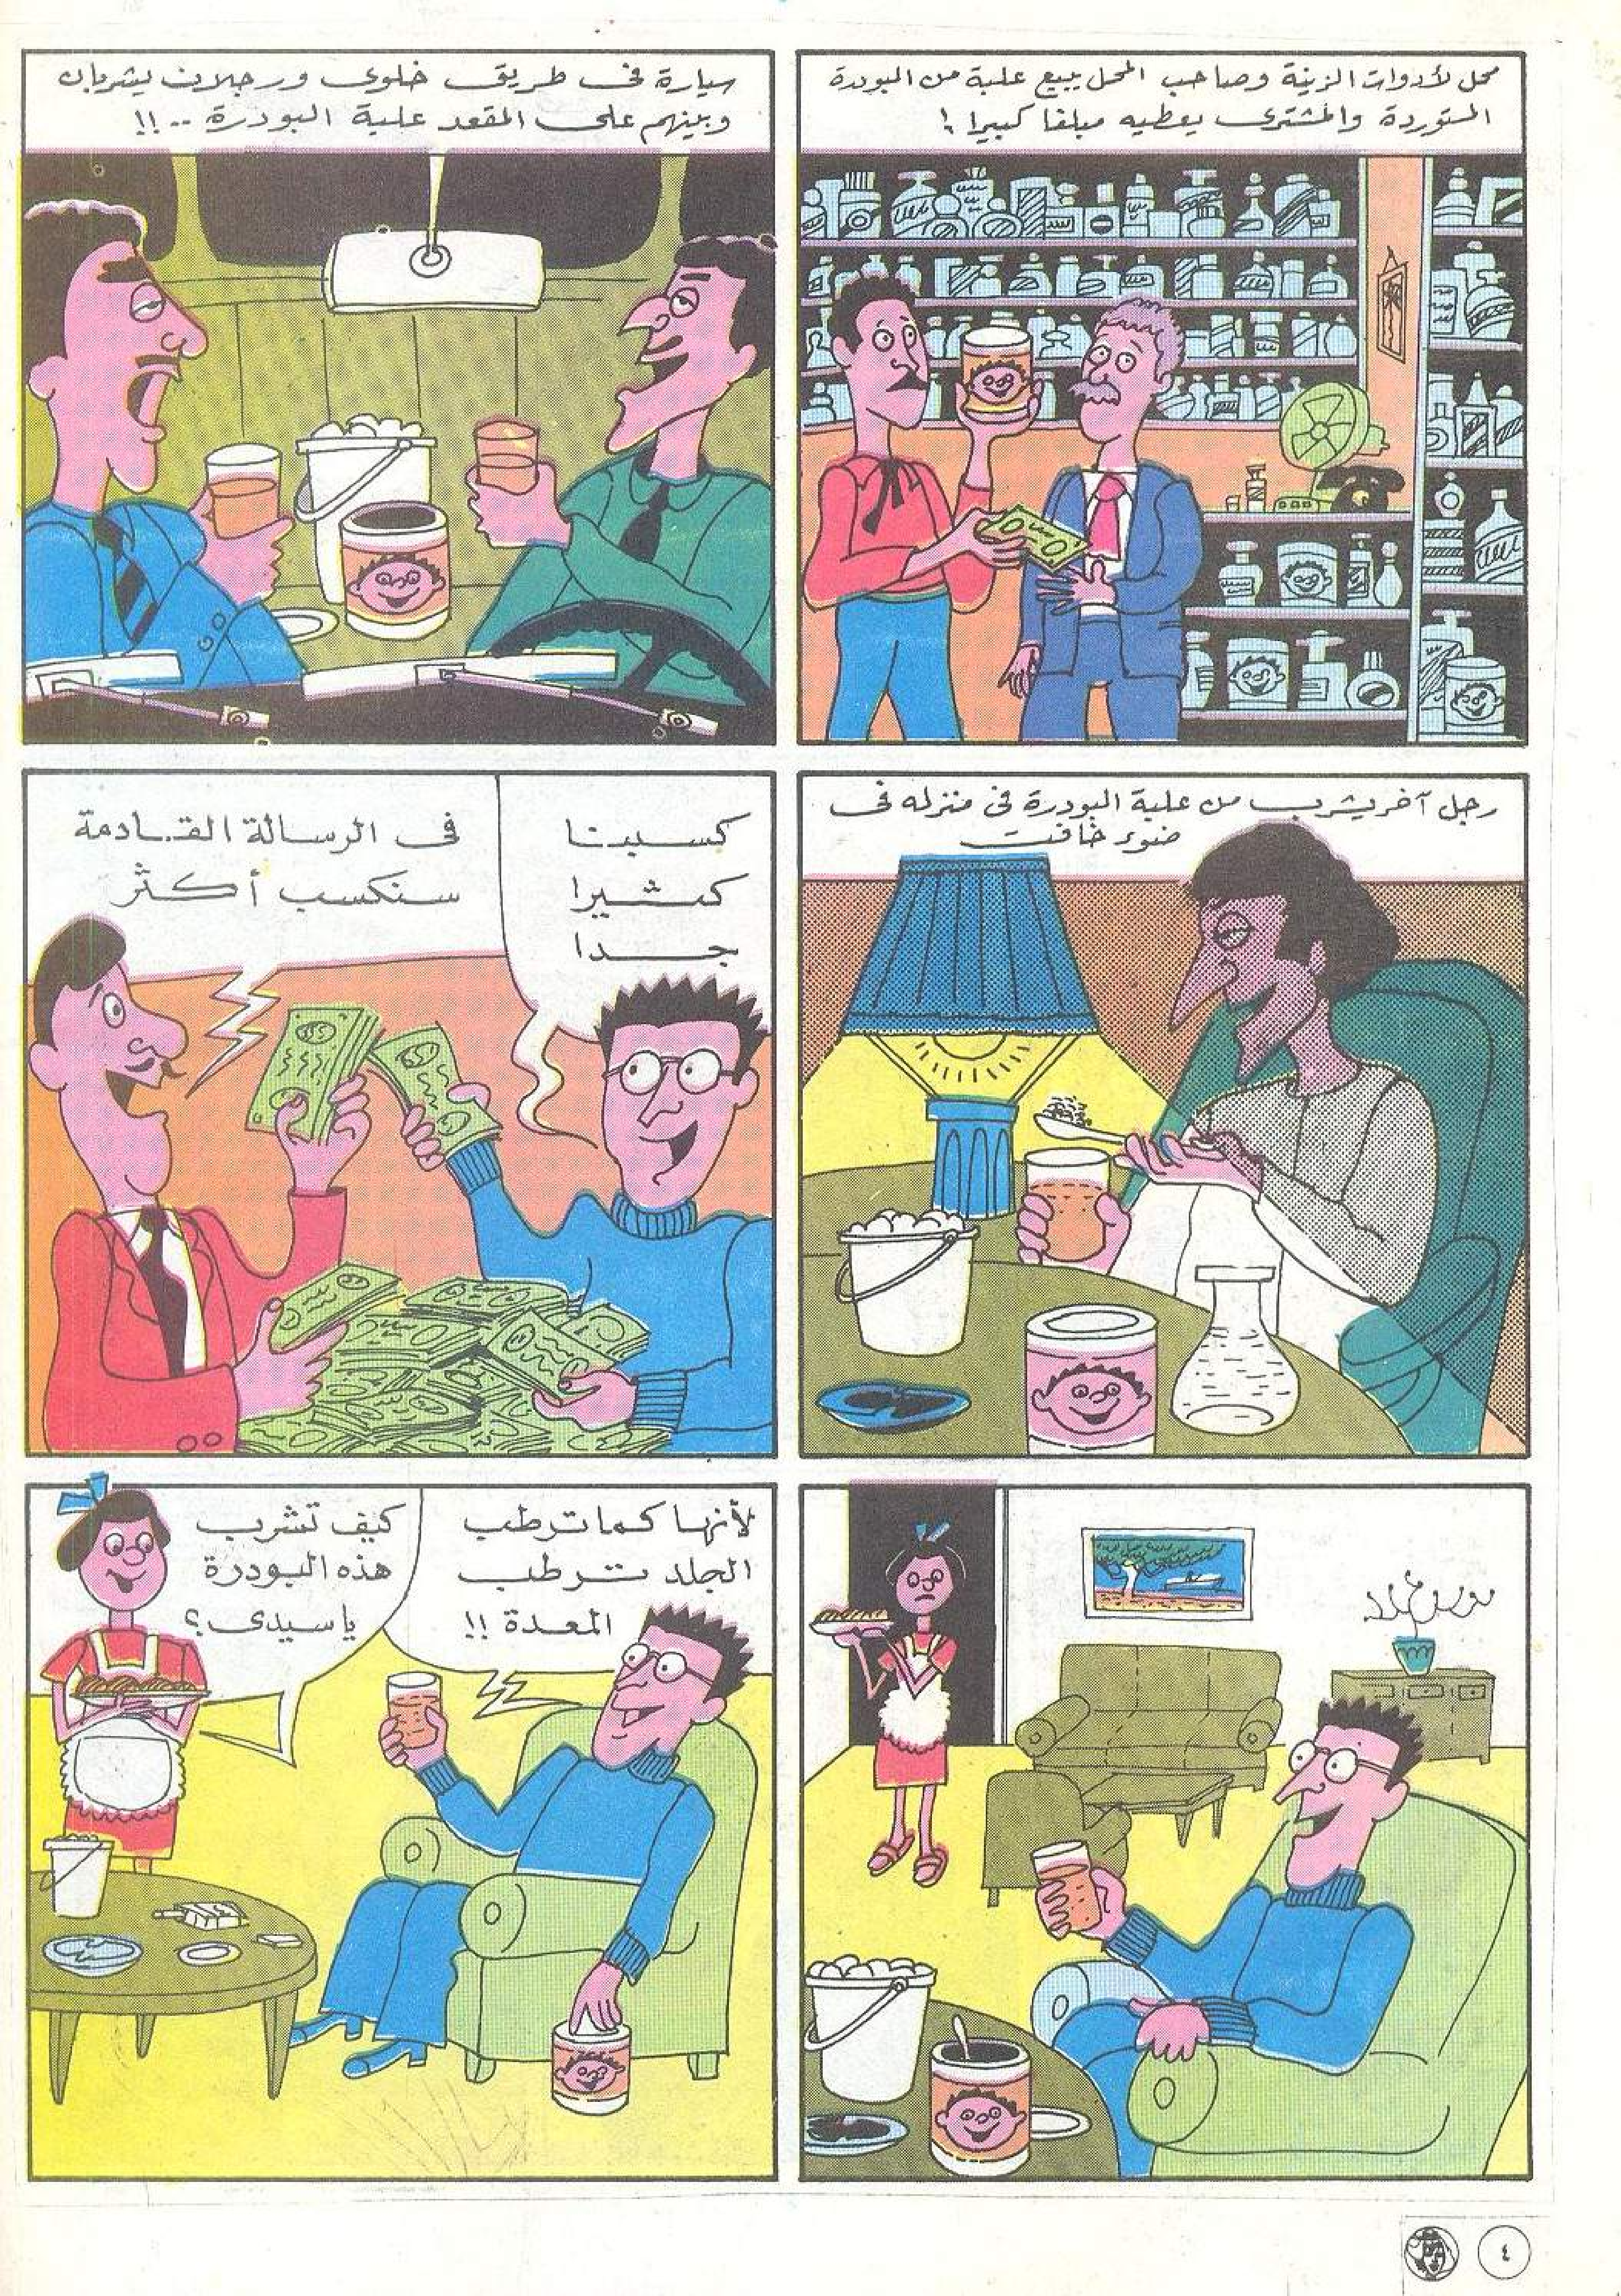 محل لأدوات الزينة وصاحب المحل يبيع علبة من البودرة
المستوردة والمشترى يعطيه مبلغا كبيرا !
سيارة فى طريق خلوى ورجلان يشربان
وبينهم على المقعد علبة البودرة .. !!
رجل آخر يشرب من علبة البودرة فى منزله فى
ضوء خافت
كسبنا
كثيرا
جدا
فى الرسالة القادمة
سنكسب أكثر
كيف تشرب
هذه البودرة
يا سيدى ؟
لأنها كما ترطب
الجلد ترطب
المعدة !!
٤